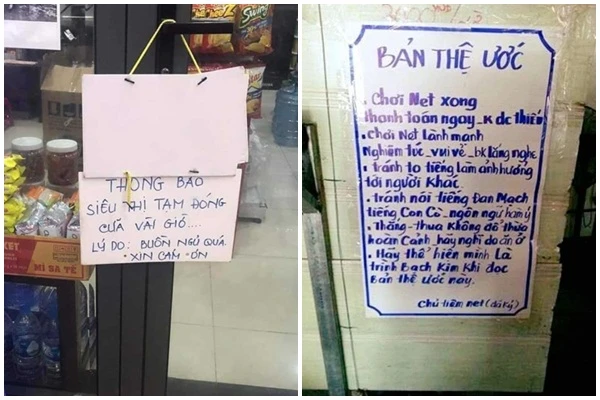 Swing
THÔNG BÁO
SIÊU THỊ TẠM ĐÓNG
CỬA VÀI GIỜ....
LÝ DO: BUỒN NGỦ QUÁ
XIN CẢM ƠN
MÌ SA TẾ
BẢN THỆ ƯỚC
. Chơi Net xong
thanh toán ngay_k dc thiếu
. chơi Net Lành mạnh
Nghiêm túc_vui vẻ_bk lắng nghe
. tránh to tiếng làm ảnh hưởng
tới người Khác
. tránh nói tiếng Đan Mạch
tiếng Con Cò_ngôn ngữ hàm ý
. Thắng-thua Không đổ thừa
hoàn Cảnh, hay nghĩ do ăn ở
. Hãy thể hiện mình Là
trình Bạch Kim Khi đọc
Bản thệ ước này.
Chủ tiệm net (đã ký)